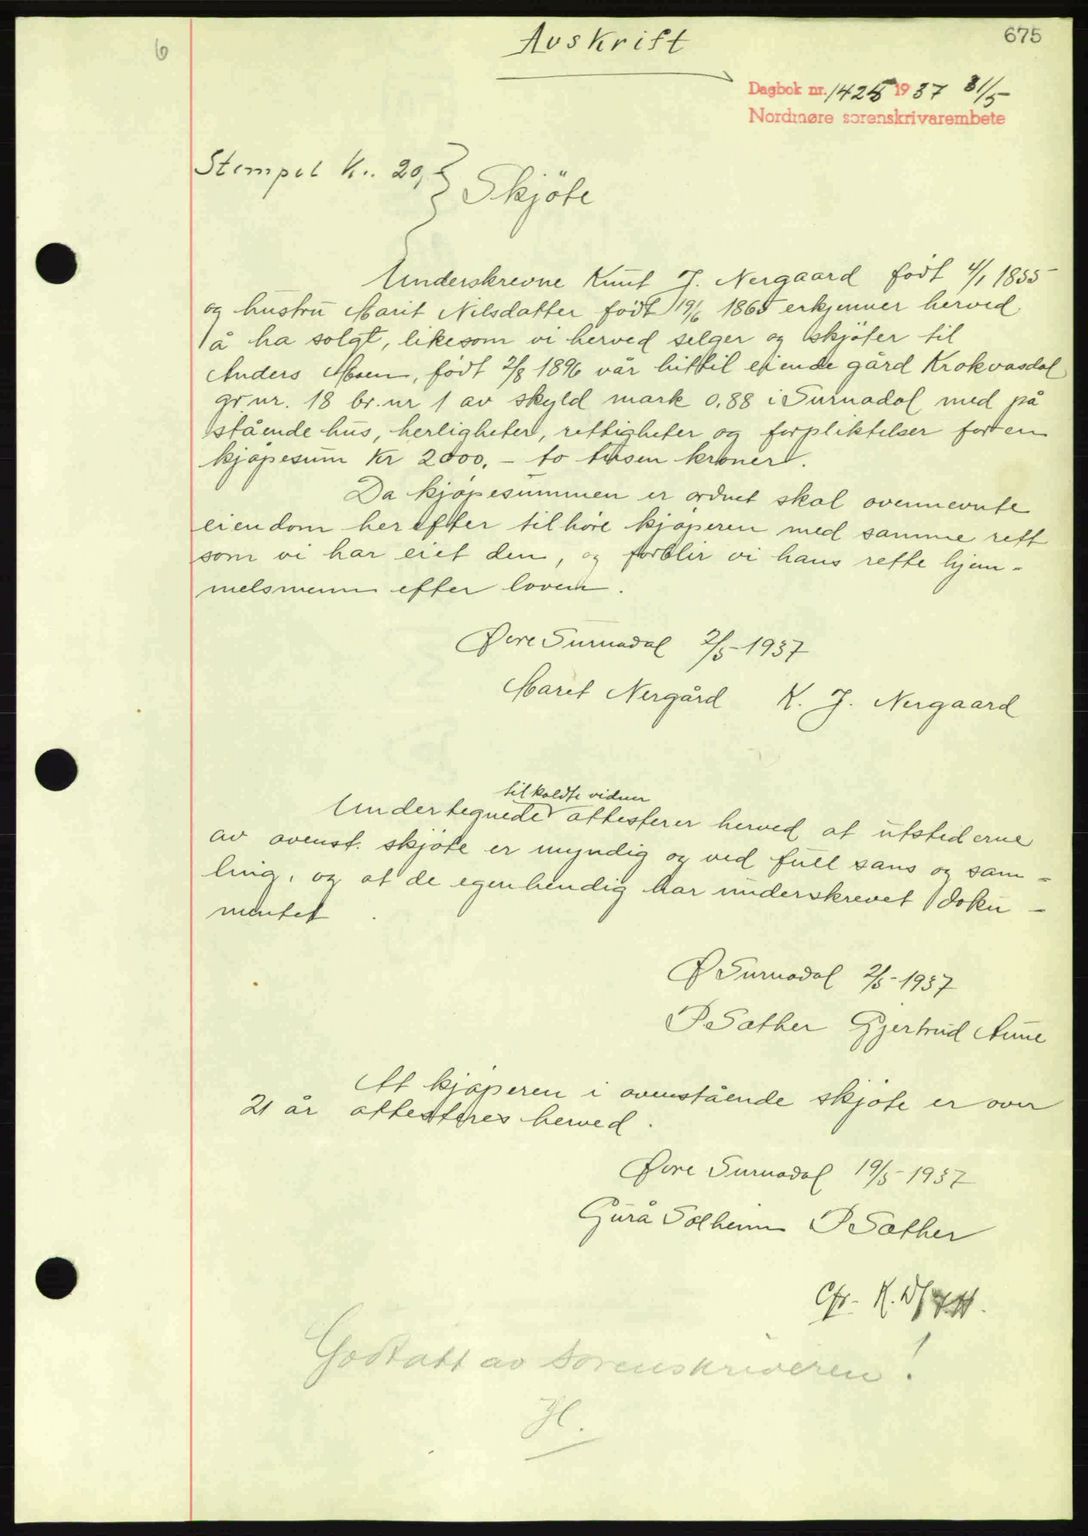 6
Avskrift
675
Dagbok nr. 1425 1937 31/5
Nordmøre sorenskrivarembete
Stempel Kr. 20,-
Skjöte
Underskrevne Knut J. Nergaard født 4/1 1855
og hustru Marit Nilsdatter født 19/6 1865 erkjenner herved
å ha solgt, likesom vi herved selger og skjöter til
Anders Moen, født 2/8 1896 vår hittil eiende gård Krokvasdal
gr nr. 18 br. nr 1 av skyld mark 0,88 i Surnadal med på
stående hus, herligheter, rettigheter og forpliktelser for en
kjöpesum Kr 2000.- to tusen kroner.
Da kjöpesummen er ordnet skal ovennevnte
eiendom herefter tilhöre kjöperen med samme rett
som vi har eiet den, og forblir vi hans rette hjem-
melsmenn efter loven.
Øvre Surnadal 2/5-1937
Maret Nergård K. J. Nergaard
tilkaldte vidner
Undertegnede attesterer herved at utstederne
av ovenst. skjöte er myndig og ved full sans og sam-
ling, og at de egenhendig har underskrevet doku-
mentet.
Ø Surnadal 2/5-1937
P Sæther Gjertrud Aune
At kjöperen i ovenstående skjöte er over
21 år attesteres herved.
Øvre Surnadal 19/5-1937
Gurå Solheim P Sæther
Cfr. K.
Godtatt av sorenskriveren!
H.